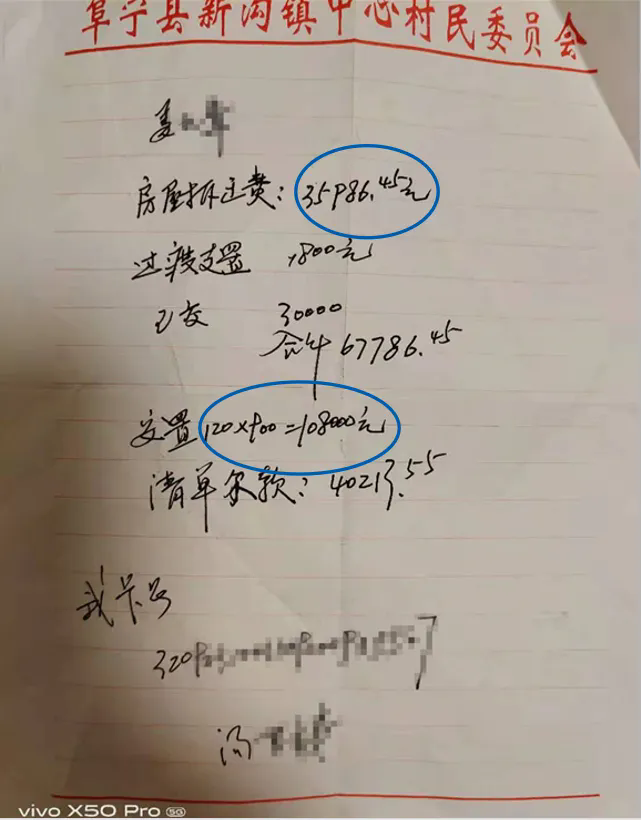 阜宁县新沟镇中心村民委员会
房屋拆迁费：35986.45元
过渡安置 1800元
已交 30000
合计 67786.45
安置 120×900=108000元
清单欠款：40213.55
我卡号
320
汤
vivo X50 Pro 5G